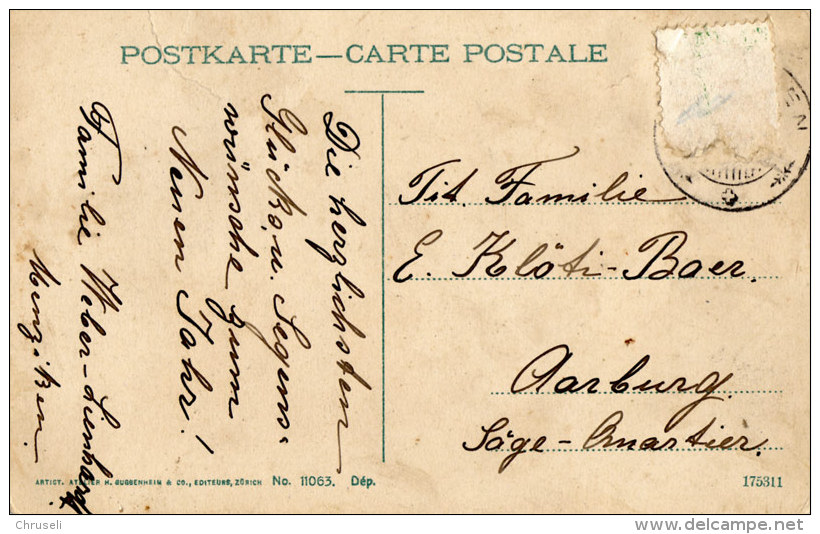 POSTKARTE—CARTE POSTALE
EN
Die herzlichsten
Glücks- u. Segens-
wünsche zum
Neuen Jahr!
Familie Weber-Lienhard
Menziken.
Tit. Familie
E. Klöti-Baer.
Aarburg.
Säge-Quartier.
ARTICT. ATELIER H. GUGGENHEIM & CO., EDITEURS, ZÜRICH No. 11063. Dép.
175311
Chruseli
delcampe.net